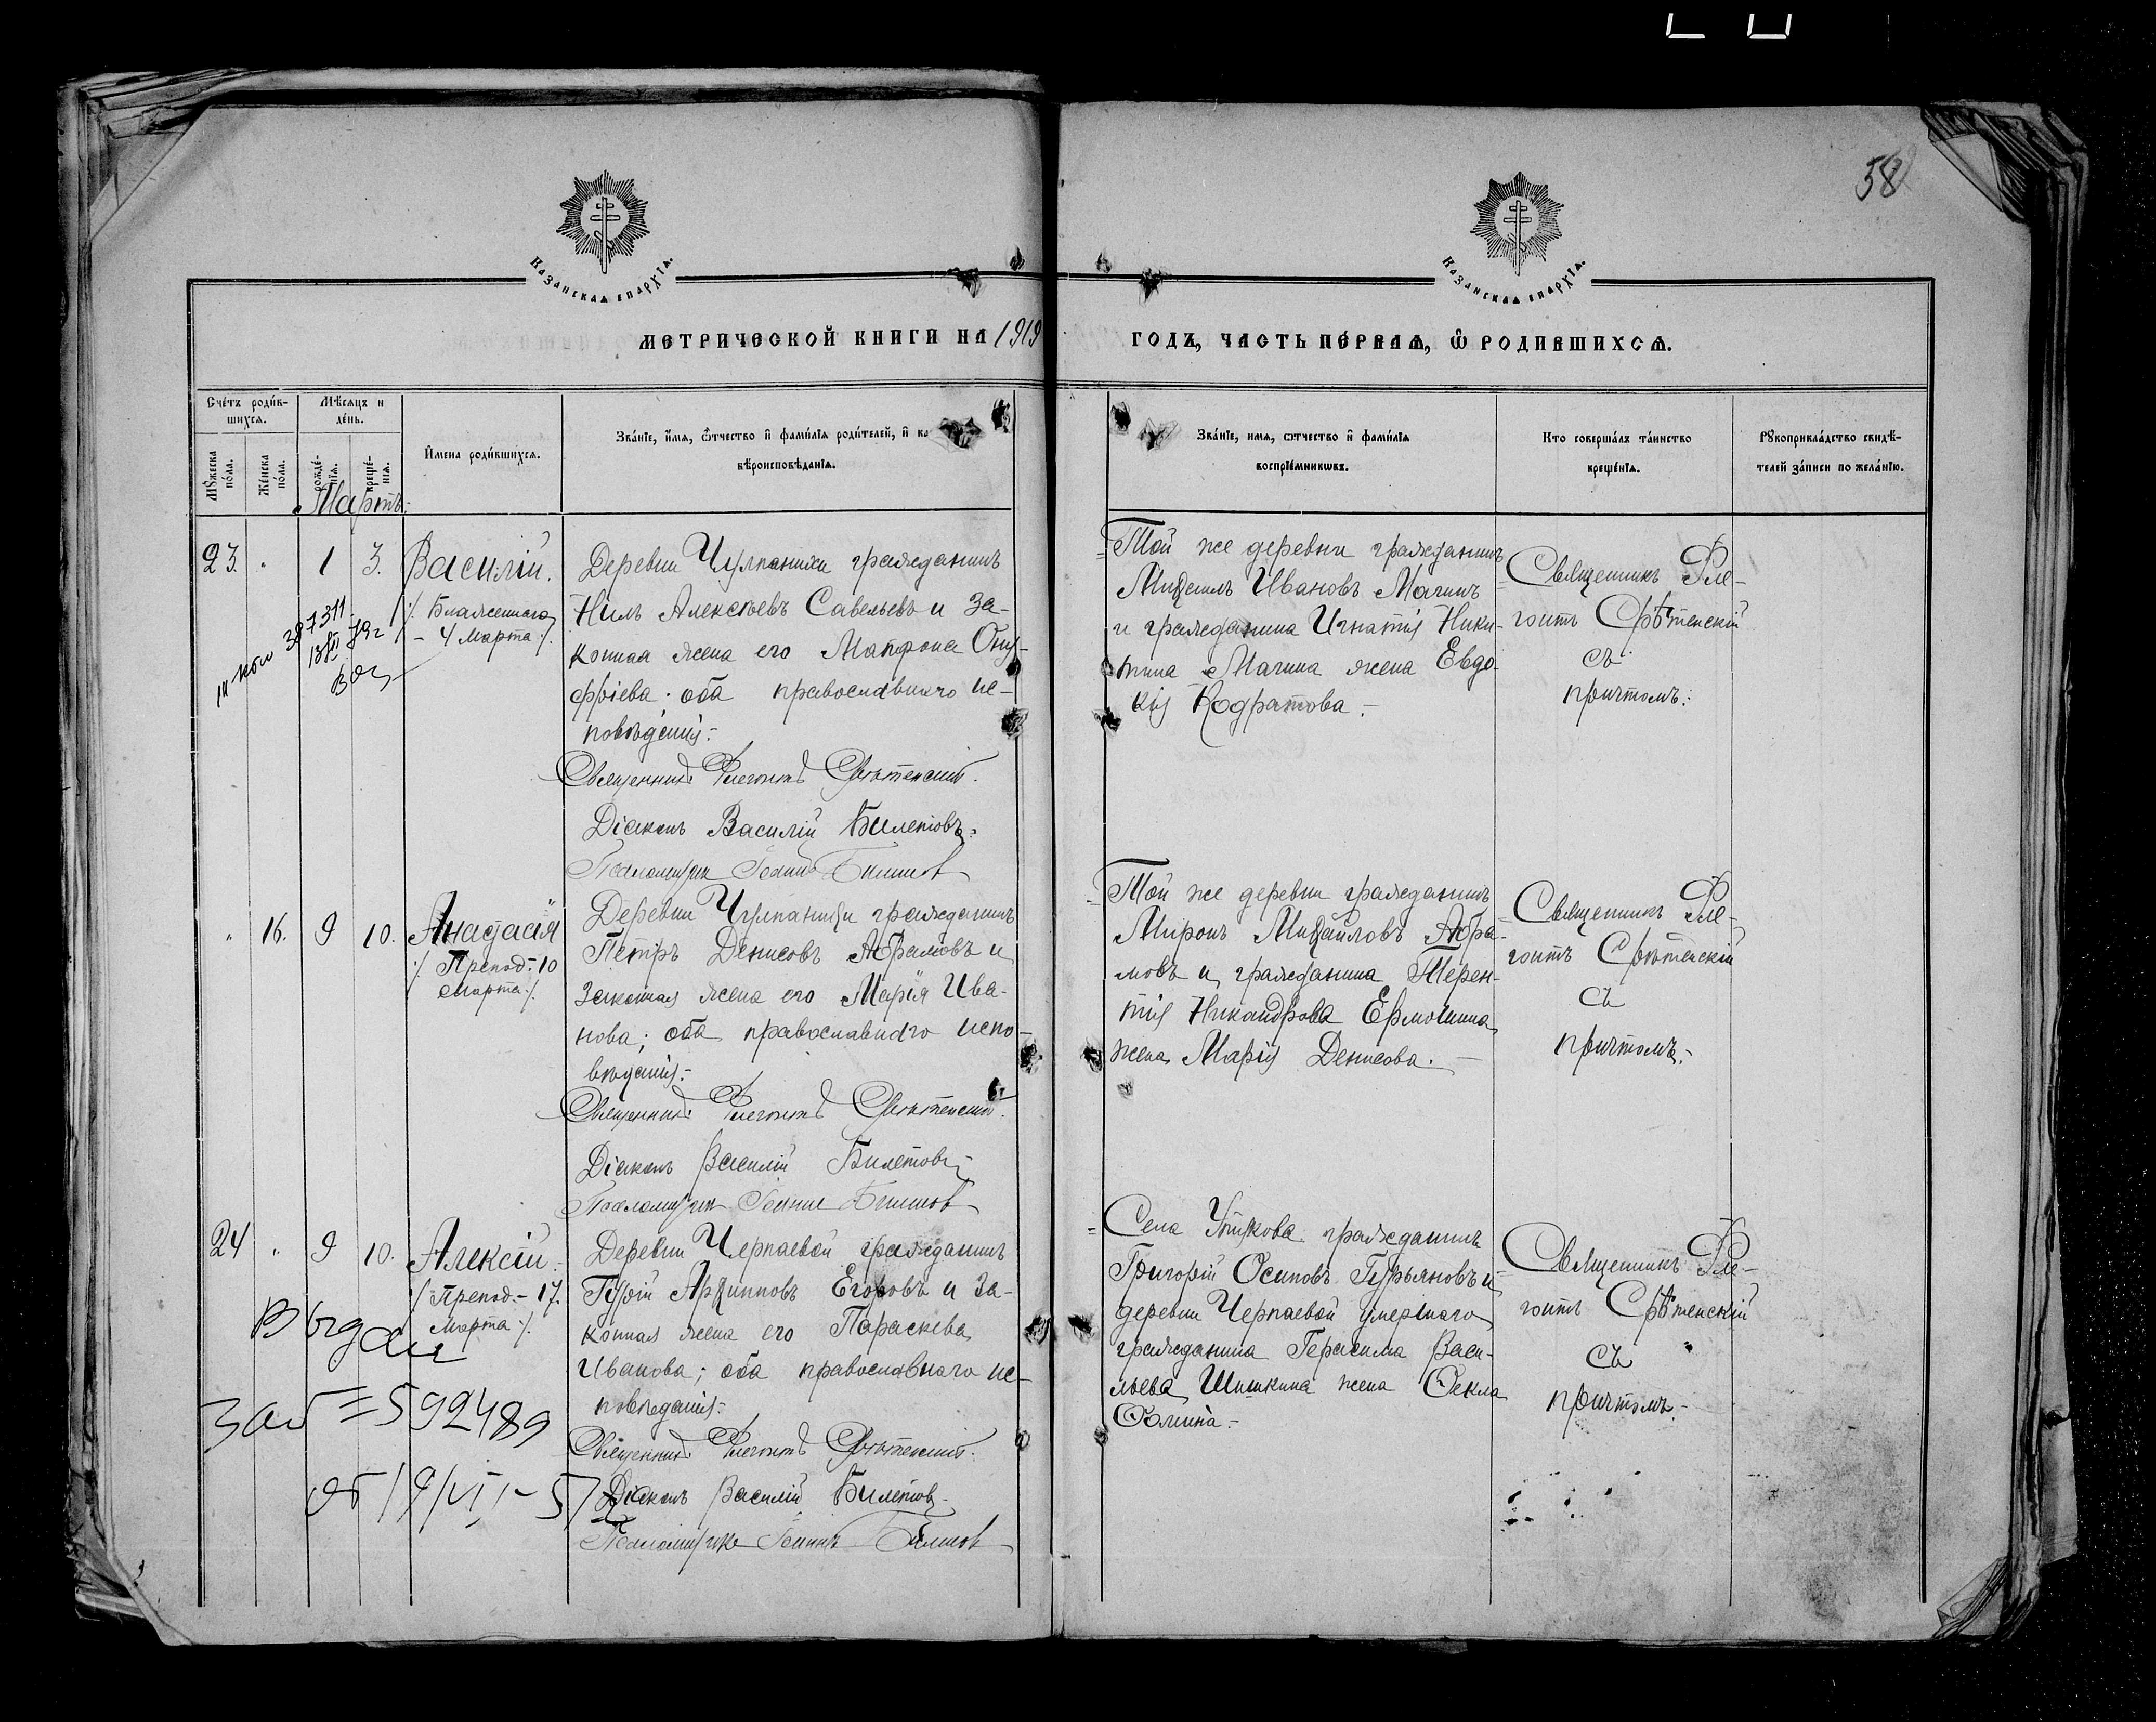 58
Казанская епархїѧ.
Казанская епархїѧ.
МЕТРИЧЕСКОЙ КНИГИ НА 1919
ГОДЪ, ЧАСТЬ ПЕ́РВАѦ, Ѽ РОДИВШИХСѦ.
Сче́тъ роди́в-
шихсѧ.
Мѣ́сѧцъ и
де́нь.
Мꙋжеска
по́ла.
Же́нска
по́ла.
рожде́-
нїѧ.
креще́-
нїѧ.
И҆мена роди́вшихсѧ.
Зва́нїе, и҆́мѧ, ѻ҆́тчество и҆ фами́лїѧ роди́телей, и҆ ка
вѣроисповѣ́данїѧ.
Зва́нїе, имѧ, ѻтчество и҆ фами́лїѧ
воспрїе́мникѡвъ.
Кто соверша́лъ та́инство
креще́нїѧ.
Рꙋкоприкла́дство свидѣ́-
телей за́писи по жела́нїю.
Мартъ.
23. " 1 3. Василій.
/. Блаженнаго
- 4 Марта ./.
387311
Деревни Чулпанихи гражданинъ
Нилъ Алексѣевъ Савельевъ и за-
конная жена его Матрона Ону-
фріева; оба православнаго ис-
повѣданія.-
Священникъ Флегонтъ Срѣтенскій.
Діаконъ Василій Билетовъ.
Псаломщик
Той же деревни гражданинъ
Михаилъ Ивановъ Магинъ
и гражданина Игнатія Ники-
тина Магина жена Евдо-
кія Кодратова.-
Священникъ Фле-
гонтъ Срѣтенскій
съ
причтомъ.
" 16. 9 10. Анастасія
/. Препод. 10
Марта ./.
Деревни Чулпанихи гражданинъ
Петръ Денисовъ Абрамовъ и
законная жена его Марія Ива-
нова; оба православнаго испо-
вѣданія.-
Священникъ Флегонтъ Срѣтенскій.
Діаконъ Василій Билетовъ
Псаломщик
Той же деревни гражданинъ
Миронъ Михайловъ Абра-
мовъ и гражданина Терен-
тія Никандрова Ермошина
жена Марія Денисова.-
Священникъ Фле-
гонтъ Срѣтенскій
съ
причтомъ.-
24 " 9 10. Алексій.
/. Препод.- 17.
Марта ./.
Выдан
592489
от 19/VI
Деревни Черпаевой гражданинъ
Гурій Архипповъ Егоровъ и за-
конная жена его Параскева
Иванова; оба православнаго ис-
повѣданія.-
Священникъ Флегонтъ Срѣтенскій.
Діаконъ Василій Билетовъ
Псаломщик
Села Утякова гражданинъ
Григорій Осиповъ Гурьяновъ и
деревни Черпаевой умершаго
гражданина Герасима Васи-
льева Шишкина жена Ѳекла
Ѳомина.-
Священникъ Фле-
гонтъ Срѣтенскій
съ
причтомъ.-